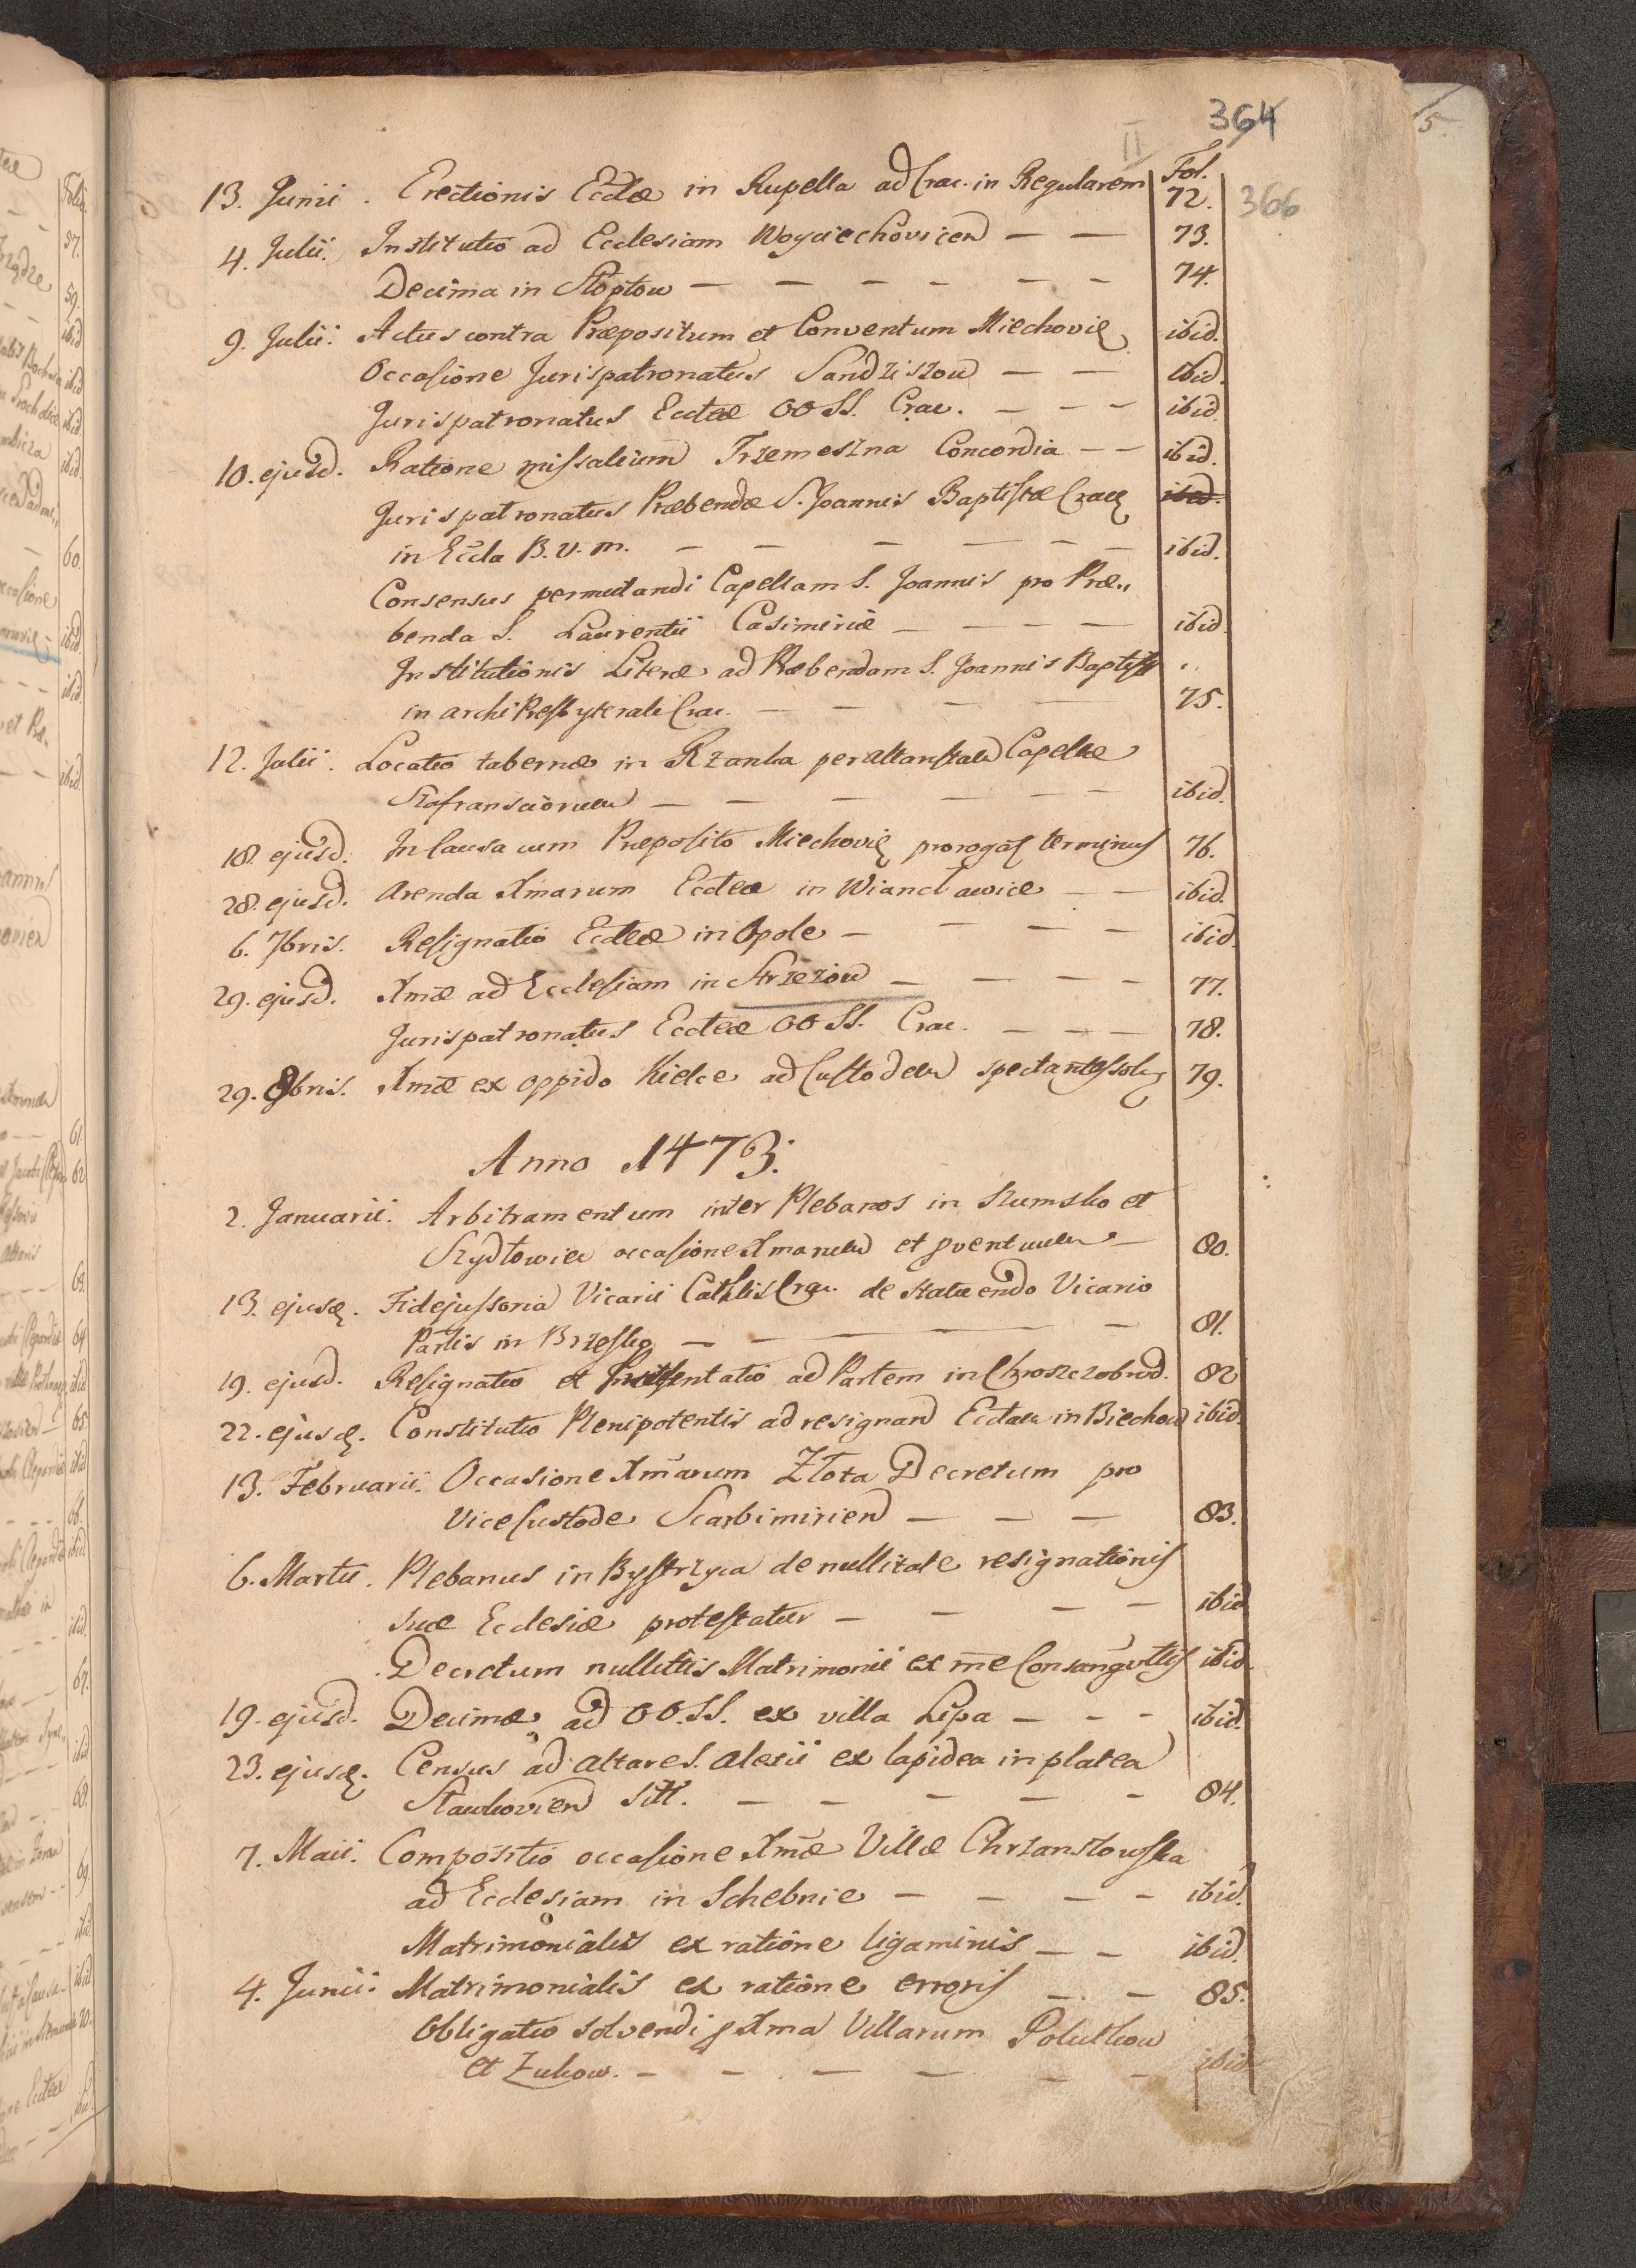 364
II
Fol.
13. Junii. Erectionis Eccłæ in Rupella ad Crac. in Regularem 72.
366
4. Julii. Institutio ad Ecclesiam Woyciechovicen — — 73.
Decima in Stoptow — — — — — — 74.
9. Julii. Actus contra Præpositum et Conventum Miechovię ibid.
Occasione Jurispatronatus Sandziszow — — ibid.
Jurispatronatus Eccłæ OO SS. Crac. — — — ibid
10. ejusd. Ratione missalium Trzemeszna Concordia — — ibid.
Jurispatronatus Præbendæ S. Joannis Baptistæ Cracę ibid.
in Eccla B. V. M. — — — — — — ibid.
Consensus permutandi Capellam S. Joannis pro Præ„
benda S. Laurentii Casimiriæ — — — — ibid.
Institutionis Literæ ad Præbendam S. Joannis Baptistę
in archiPresbyterali Crac. — — — — 75.
12. Julii. Locatio tabernæ in Rzanka per altaristam Capellæ
Szafransciorum — — — — — — ibid.
18. ejusd. In Causa cum Præposito Miechovię prorogat terminus 76.
28. ejusd. Arenda Xmarum Eccłæ in Wianclawice — — ibid.
6. 7bris. Resignatio Eccłæ in Opole — — — — ibid.
29. ejusd. Xmæ ad Ecclesiam in Strzeżow — — — — 77.
Jurispatronatus Eccłæ OO SS. Crac. — — — 78.
29. 9bris. Xmæ ex oppido Kielce ad Custodem spectantes 79.
Anno 1473.
2. Januarii. Arbitramentum inter Plebanos in Szumsko et
Szydłowiec occasione Xmarum et pventuum — 80.
13. ejusd. Fidejussoria Vicarii Cathlis Crac. de statuendo Vicario
Partis in Brzesko — — — — — 81.
19. ejusd. Resignatio et Præsentatio ad Partem in Chroszczobrod. 82
22. ejusd. Constitutio Plenipotentis ad resignand Ecclam in Biechow ibid.
13. Februarii. Occasione Xmarum Złota Decretum pro
ViceCustode Scarbimirien — — — 83.
6. Martii. Plebanus in Bystrzyca de nullitate resignationis
suæ Ecclesiæ protestatur — — — — ibid
Decretum nullittis Matrimonii ex rne Consangvttis ibid.
19. ejusd. Decimæ ad OO. SS. ex villa Lipa — — — ibid.
23. ejusd. Census ad altare S. Alexii ex lapidea in platea
Slawkovien sitt. — — — — — 84.
7. Maii. Compositio occasione Xmæ Villæ Chrzanstowska
ad Ecclesiam in Schebnie — — — — ibid.
Matrimonialis ex ratione ligaminis — — ibid.
4. Junii. Matrimonialis ex ratione erroris — — 85.
Obligatio solvendi p Xma Villarum Polutkow
et Zukow. — — — — — — ibid